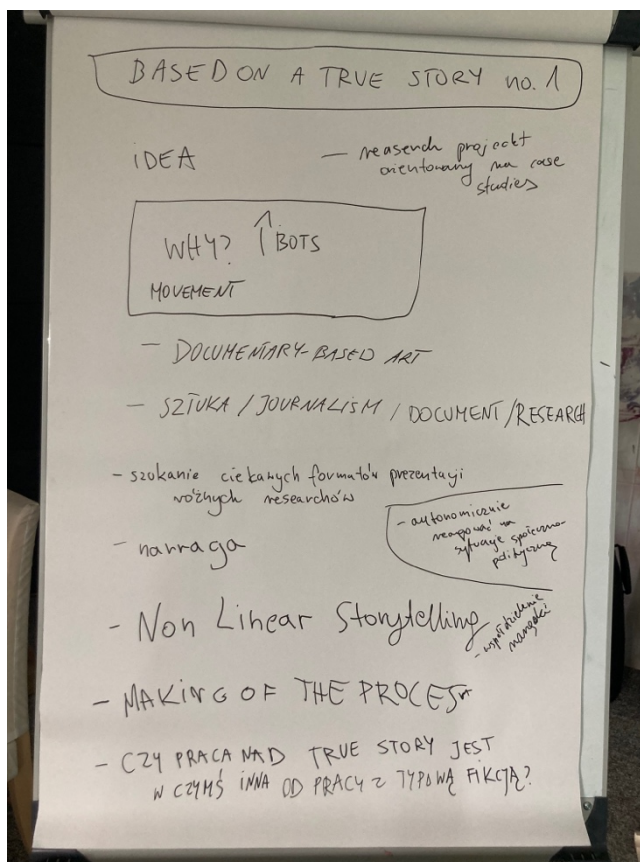 BASED ON A TRUE STORY no. 1
IDEA
— reaserch projeckt
orientowany na case
studies
WHY? ↑ BOTS
MOVEMENT
— DOCUMENTARY-BASED ART
— SZTUKA / JOURNALISM / DOCUMENT / RESEARCH
- szukanie ciekawych formatów prezentacji
różnych researchów
- autonomicznie
reagować na
sytuacje społeczno-
polityczną
- narracja
- Non Linear Storytelling
- współdzielenie
narzędzi
- MAKING OF THE PROCES
- CZY PRACA NAD TRUE STORY JEST
W CZYMŚ INNA OD PRACY Z TYPOWĄ FIKCJĄ?